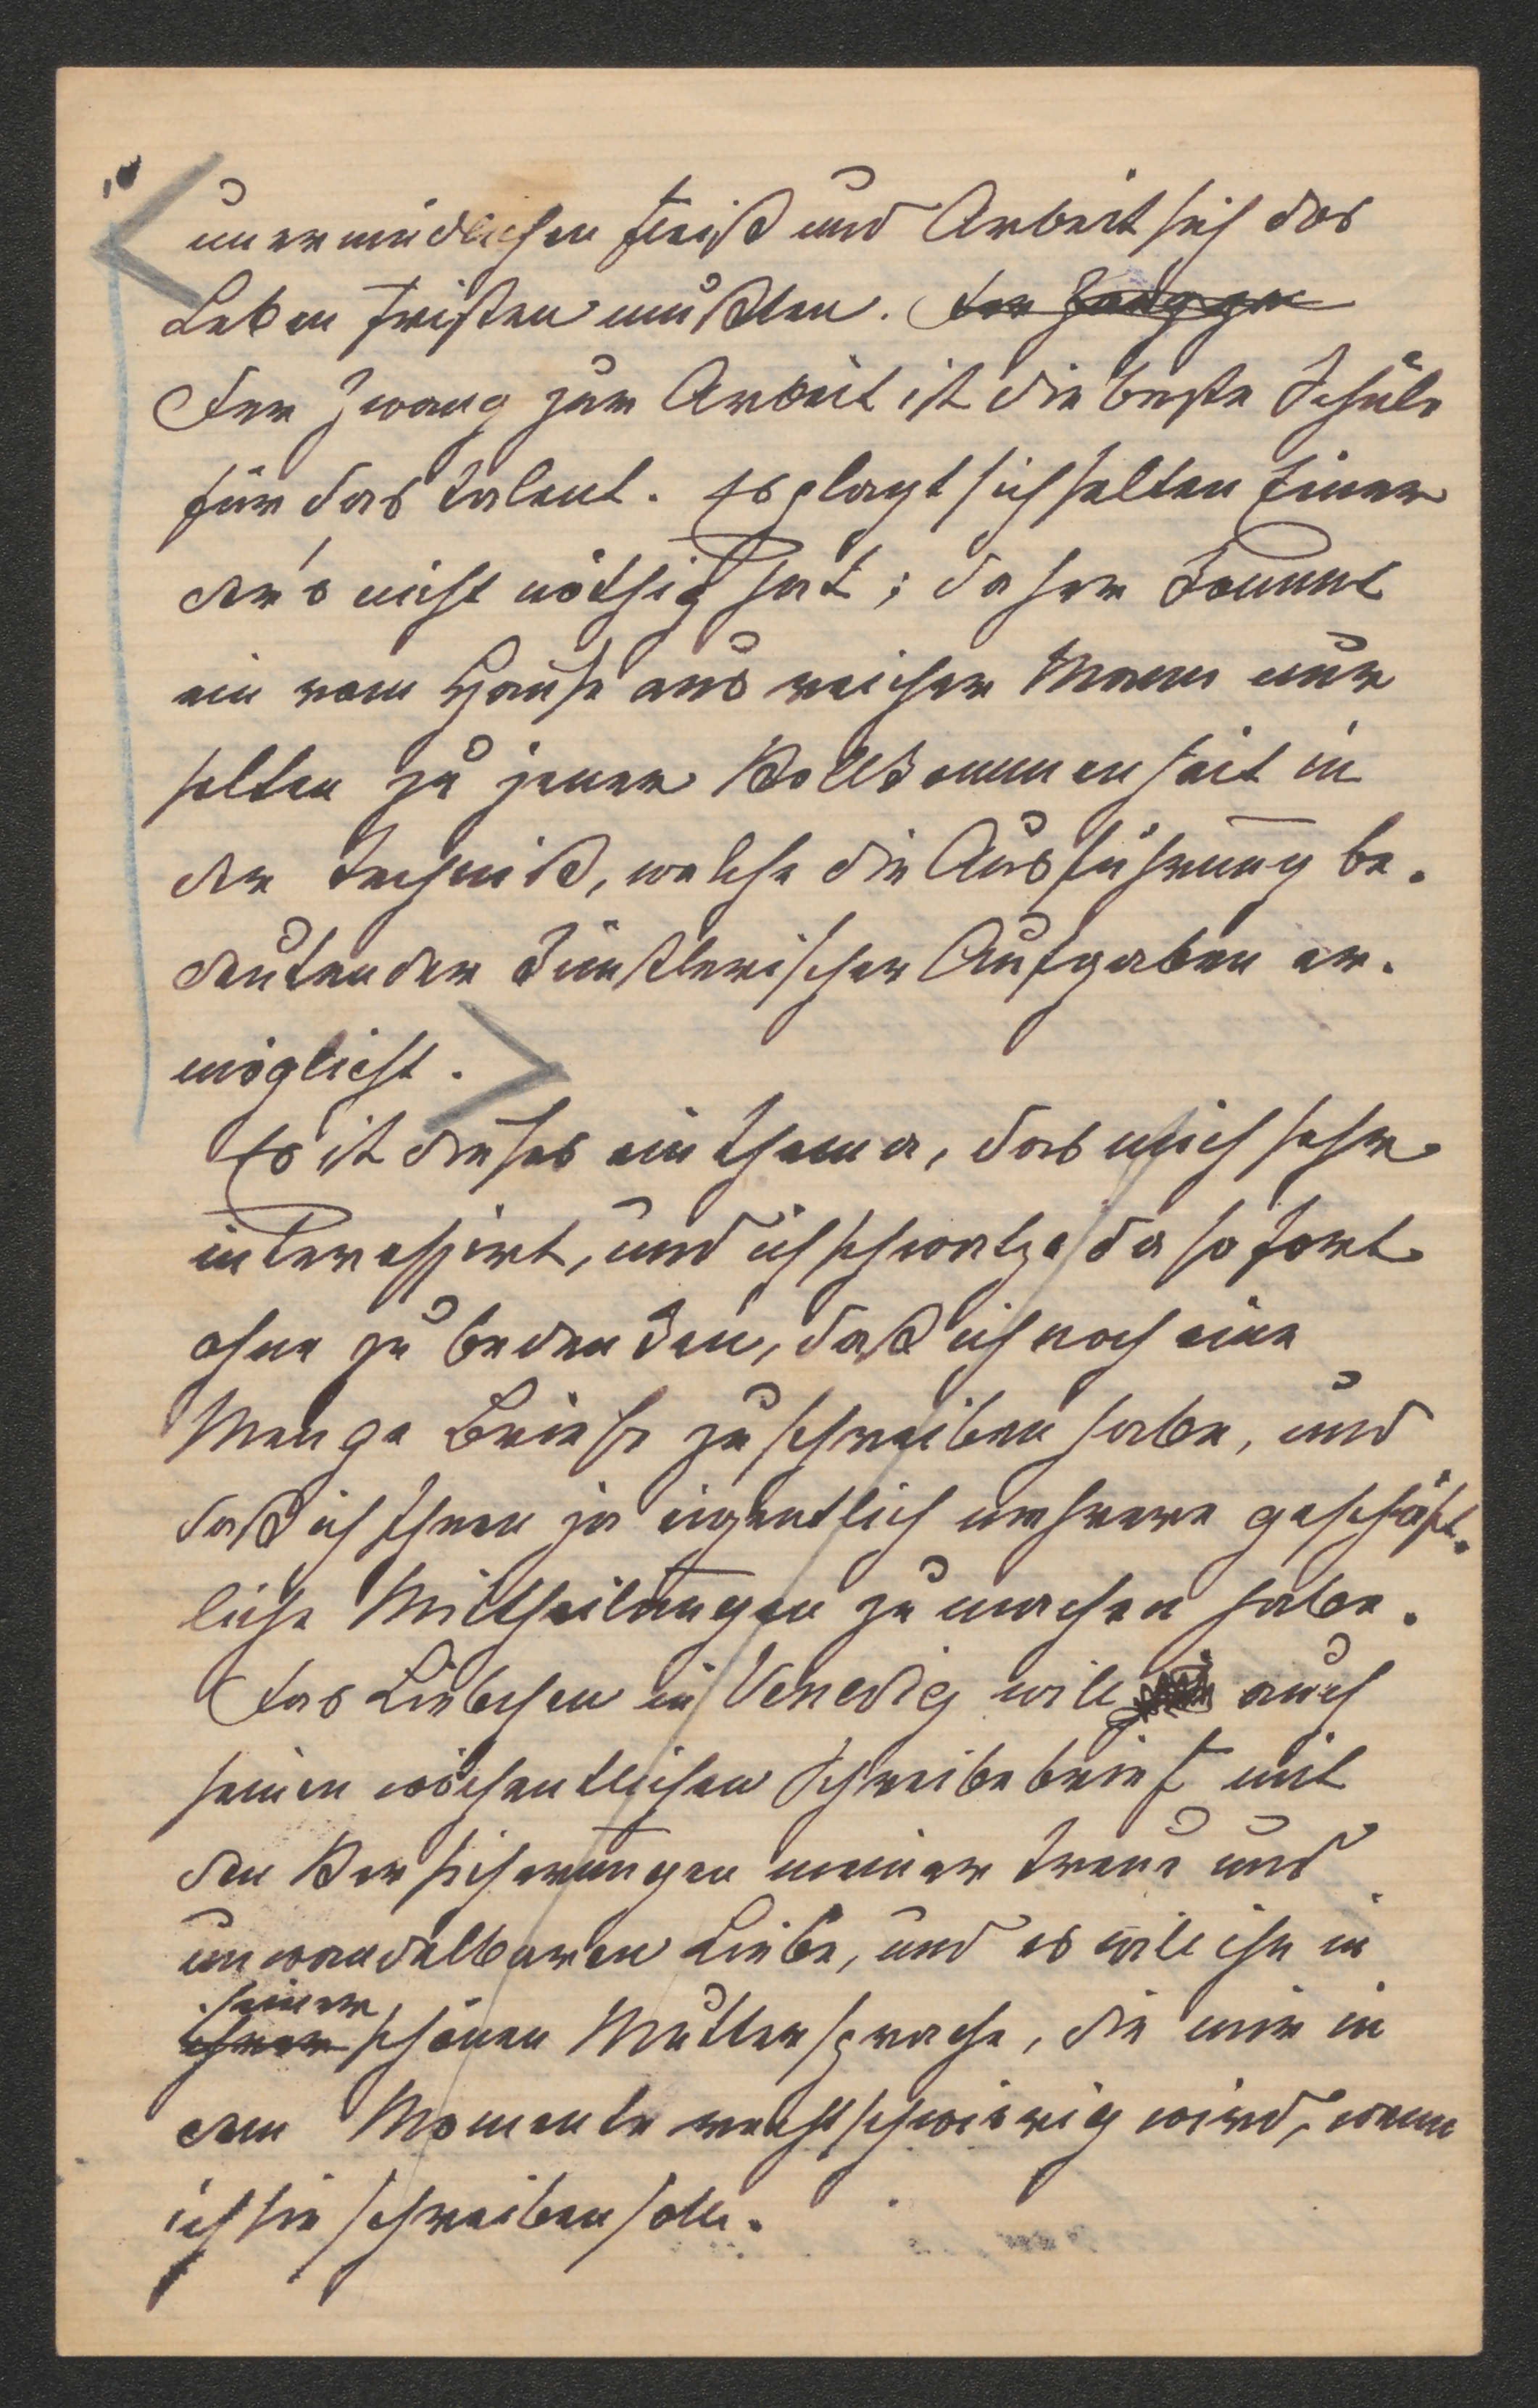 unermüdlichen Fleiß und Arbeit sich das
Leben fristen mußten. Der Zwang zur
Der Zwang zur Arbeit ist die beste Schule
für das Talent. Es plagt sich selten Einer
der's nicht nöthig hat; daher kommt
ein vom Hause aus reicher Mann nur
selten zu jener Vollkommenheit in
der Technik, welche die Ausführung be-
deutender künstlerischer Aufgaben er-
möglicht.
Es ist dieses ein Thema, das mich sehr
interessirt, und ich schwatze da so fort
ohne zu bedenken, daß ich noch eine
Menge Briefe zu schreiben habe, und
daß ich Ihnen ja eigentlich mehrere geschäft-
liche Mittheilungen zu machen habe.
Das Liebchen in Venedig will auch
seinen wöchentlichen Schreibebrief mit
den Versicherungen meiner Treue und
unwandelbaren Liebe, und es will ihn in
seiner
ihrer schönen Muttersprache, die mir in
dem Momente recht schwierig wird, wenn
ich sie schreiben soll.